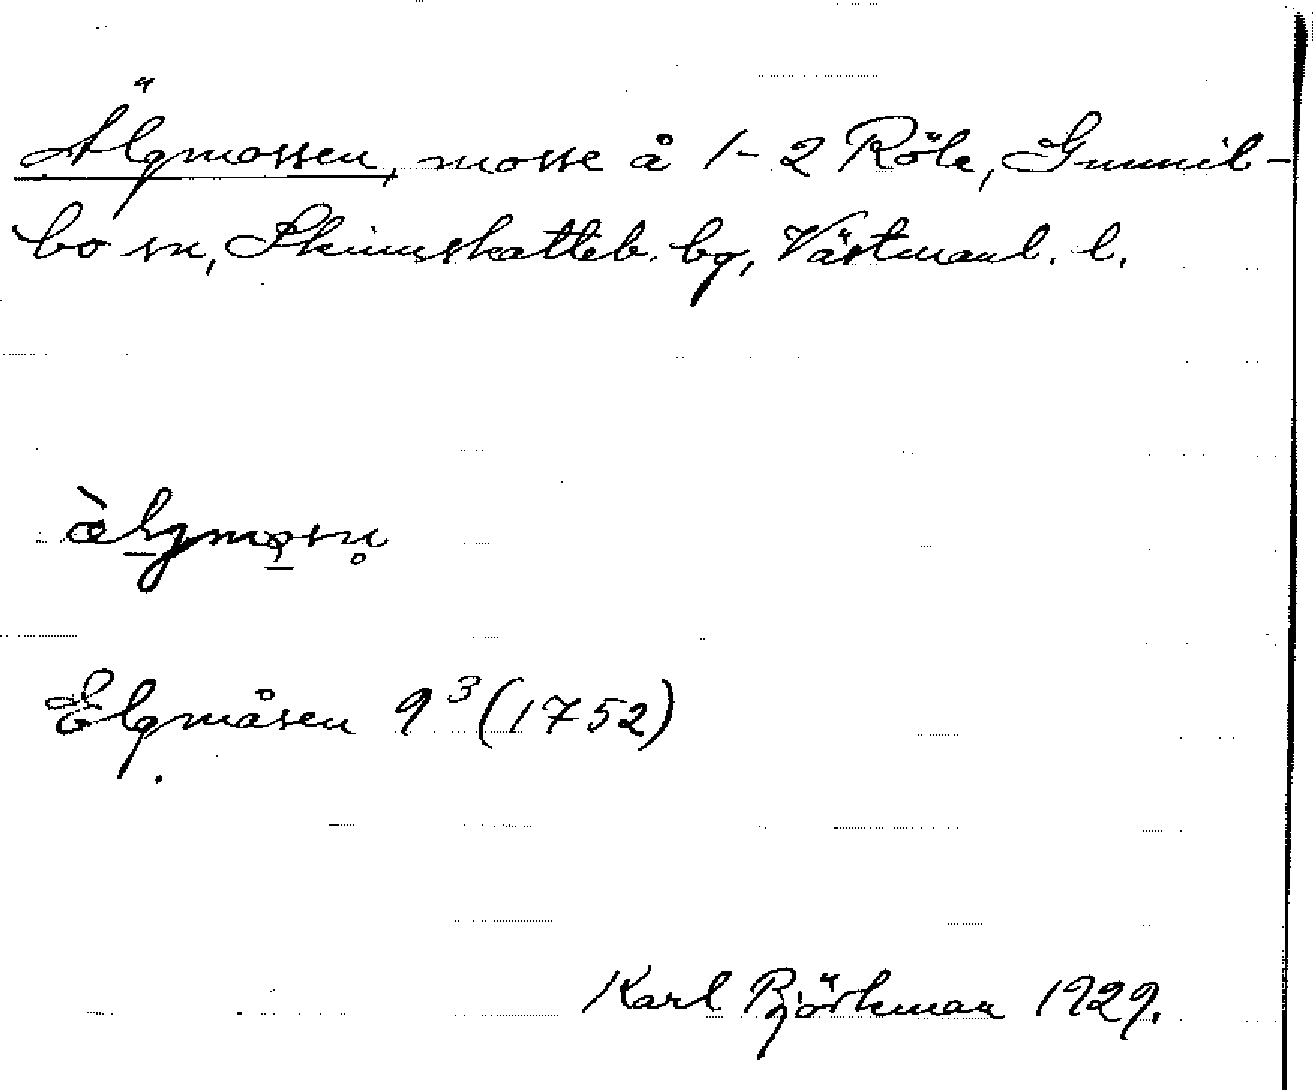 Älgmossen, mosse å 1-2 Röle, Gunnil-
bo sn, Skinnskatteb. bg, Västmanl. l.
æ̀lgmo̠sn̥
Elgmåsen 9³ (1752)
Karl Björkman 1929.